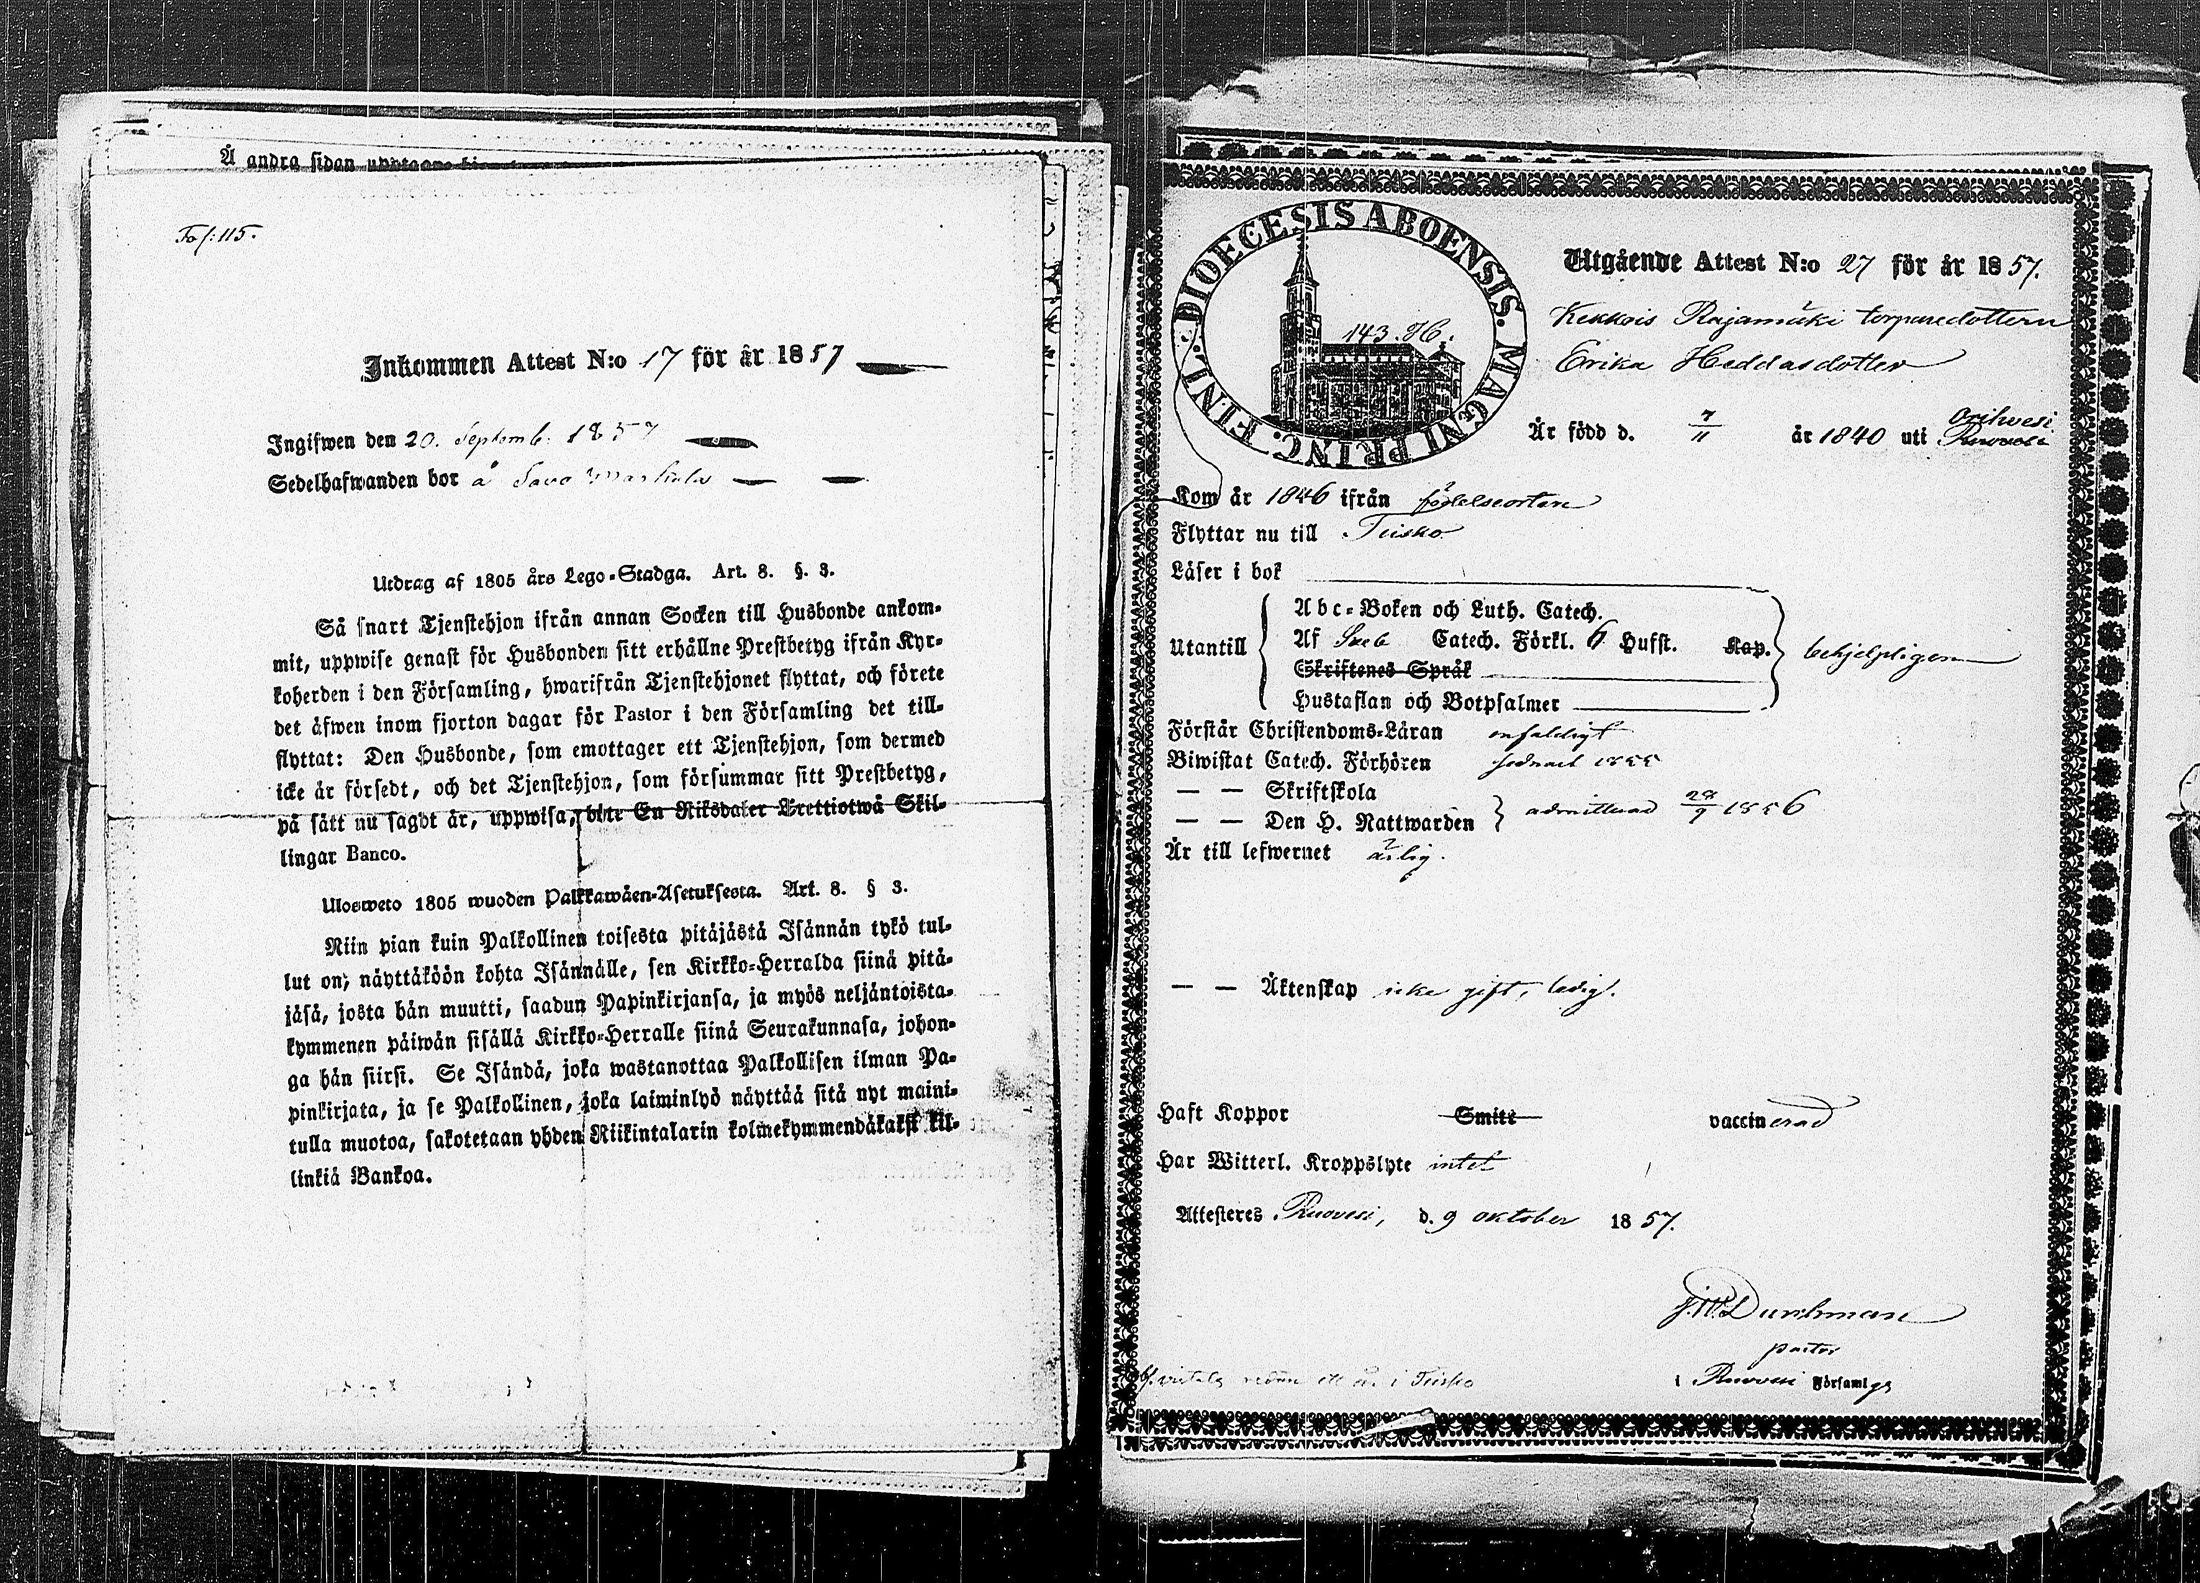 Å andra sidan upptages
Fol: 115.
Inkommen Attest N:o 17 för år 1857
Ingifwen den 20. Septemb. 1857
Sedelhafwanden bor å Savo
Utdrag af 1805 års Lego-Stadga. Art. 8. §. 3.
Så snart Tjenstehjon ifrån annan Socken till Husbonde ankom-
mit, uppwise genast för Husbonden sitt erhållne Prestbetyg ifrån Kyr-
koherden i den Församling, hwarifrån Tjenstehjonet flyttat, och förete
det äfwen inom fjorton dagar för Pastor i den Församling det till-
flyttat: Den Husbonde, som emottager ett Tjenstehjon, som dermed
icke är försedt, och det Tjenstehjon, som försummar sitt Prestbetyg,
på sätt nu sagdt är, uppwisa, böte En Riksdaler Trettiotwå Skil-
lingar Banco.
Ulosweto 1805 wuoden Palkkawäen-Asetuksesta. Art. 8. § 3.
Niin pian kuin Palkollinen toisesta pitäjästä Isännän tykö tul-
lut on, näyttäköön kohta Isännälle, sen Kirkko-Herralda siinä pitä-
jäsä, josta hän muutti, saadun Papinkirjansa, ja myös neljäntoista-
kymmenen päiwän sisällä Kirkko-Herralle siinä Seurakunnasa, johon-
ga hän siirsi. Se Isändä, joka wastanottaa Palkollisen ilman Pa-
pinkirjata, ja se Palkollinen, joka laiminlyö näyttää sitä nyt maini-
tulla muotoa, sakotetaan yhden Riikintalarin kolmekymmendäkaksi kil-
linkiä Bankoa.
DIOECESIS ABOENSIS. MAGNI PRINC. FINL.
143. 76.
Utgående Attest N:o 27 för år 1857.
Kekkois Rajamäki torparedottern
Erika Heddasdotter
Är född d. 7/11 år 1840 uti Orihvesi
Ruovesi
Kom år 1846 ifrån födelseorten
Flyttar nu till Teisko
Läser i bok
Utantill
Abc-Boken och Luth. Catech.
Af Sveb Catech. Förkl. 6 Hufst. Kap.
Skriftenes Språk
Hustaflan och Botpsalmer
behjelpligen
Förstår Christendoms-Läran enfaldigt
Biwistat Catech. Förhören sednast 1855
— — Skriftskola
— — Den H. Nattwarden
admitterad 28/9 1856
Är till lefwernet ärlig.
— — Äktenskap icke gift, ledig.
Haft Koppor Smitt vaccinerad
Har Witterl. Kroppslyte intet
Attesteres Ruovesi, d. 9 oktober 1857.
J. W. Durchman
pastor
i Ruovesi Församlgs
redan ett år i Teisko